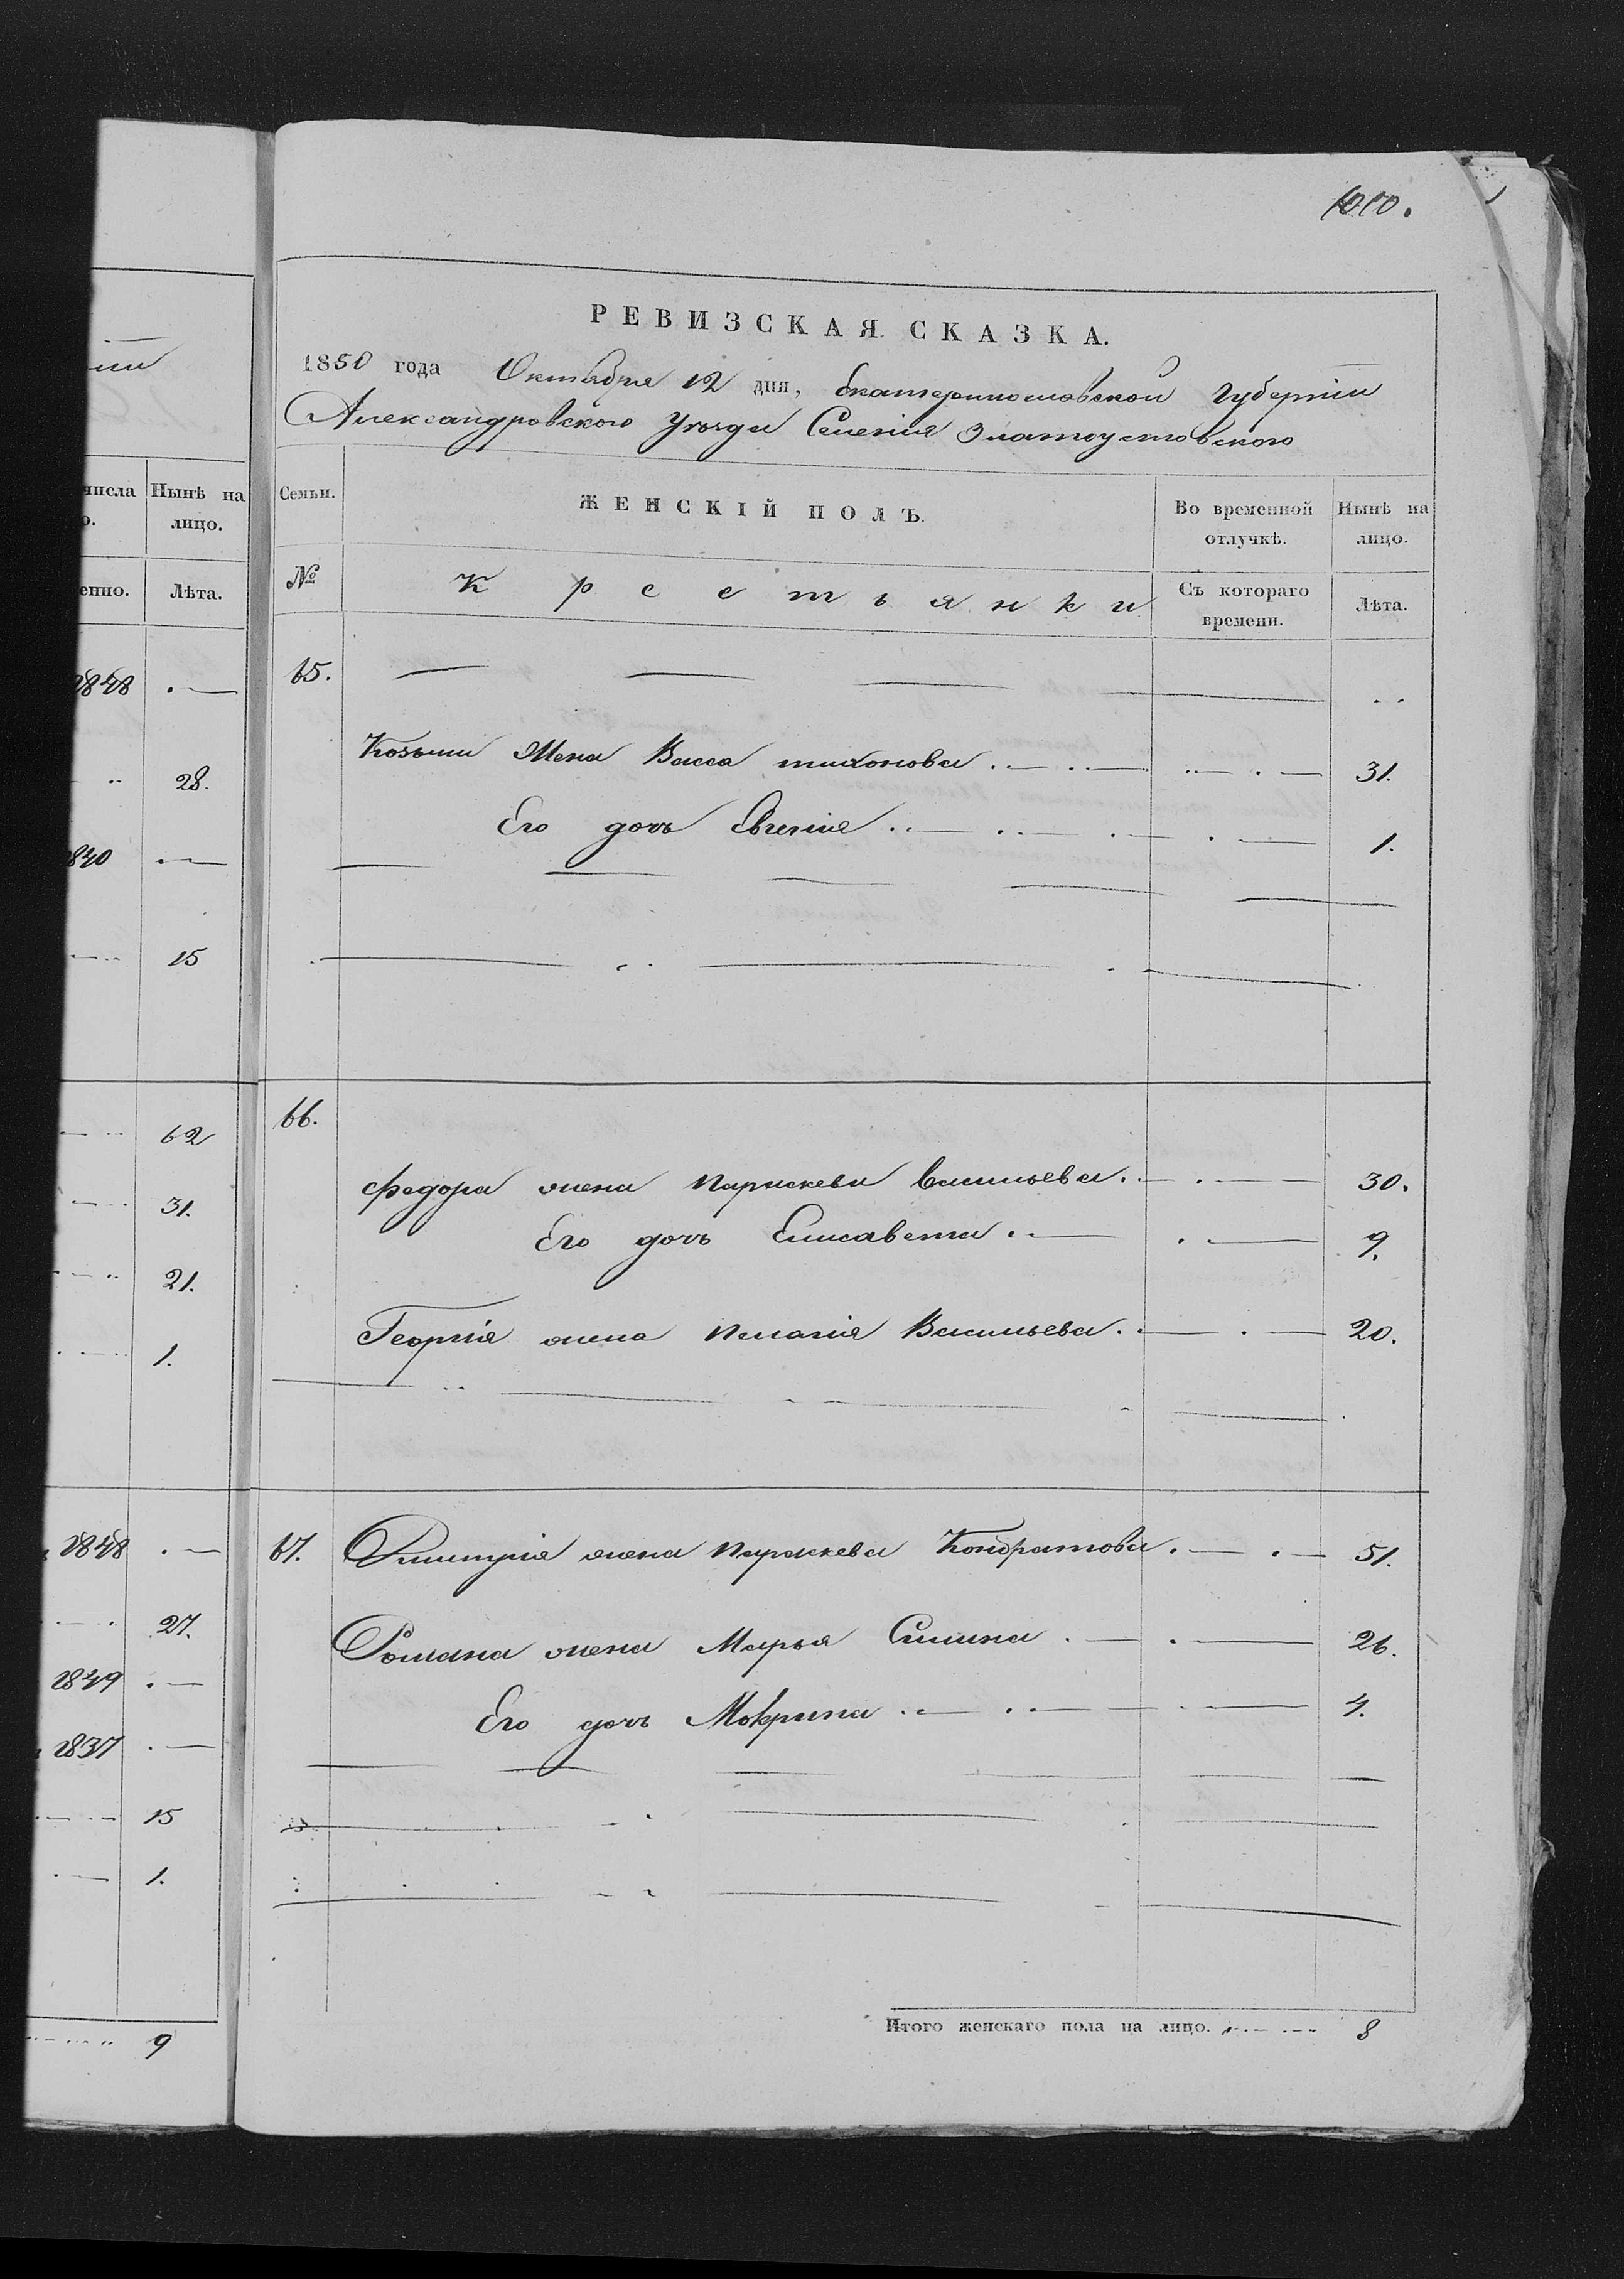 1010.
РЕВИЗСКАЯ СКАЗКА.
1850 года Октября 12 дня, Екатеринославской Губерніи
Александровского Уѣзда Селенія Златоустовского
числа Нынѣ на лицо.
енно. Лѣта.
Семьи. ЖЕНСКІЙ ПОЛЪ. Во временной отлучкѣ. Нынѣ на лицо.
№ Крестьянки Съ котораго времени. Лѣта.
1848 . —
28.
1840 . —
15
62
31.
21.
1.
1848 . —
27.
1849 . —
1837 . —
15
1.
9
65. — — — —
Козьми Жена Васса тихонова 31.
Его дочь Евгенія 1.
66.
Федора жена Параскева Васильева 30.
Его дочь Елисавета 9.
Георгія жена Пелагія Васильева 20.
67. Дмитрія жена Параскева Кондратова 51.
Романа жена Марья Силина 26.
Его дочь Мокрина 4.
Итого женскаго пола на лицо. 8